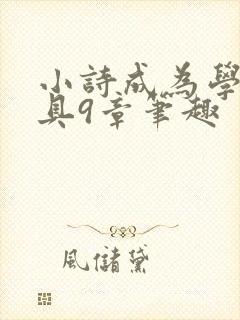 小詩成為學
具9章筆趣
風儲黛